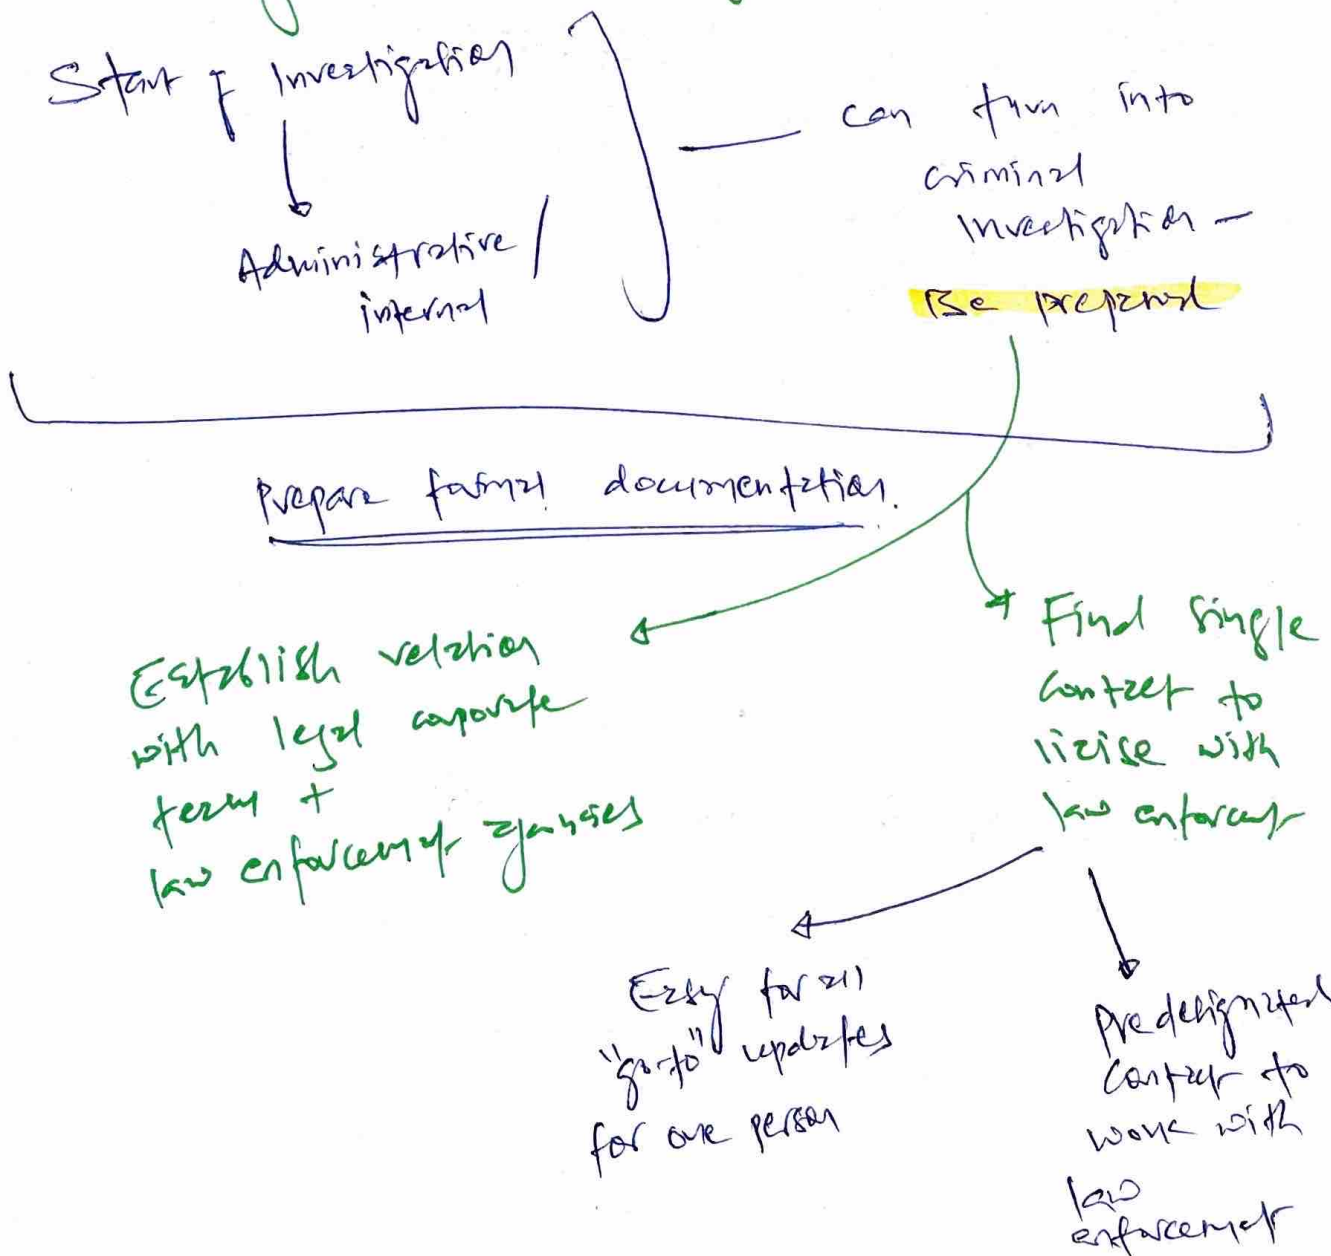 Start of Investigation
Administrative /
internal
can turn into
criminal
investigation -
Be prepared
Prepare formal documentation.
Establish relation
with legal corporate
team +
law enforcement agencies
Find single
contact to
liaise with
law enforcement
Easy for all
"go-to" updates
for one person
Predesignated
contact to
work with
law
enforcement